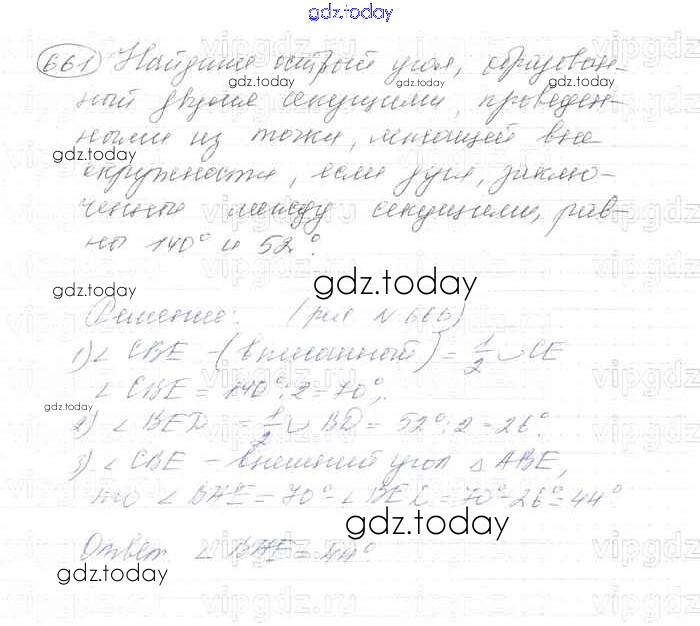 gdz.today
661 Найдите острый угол, образован-
gdz.today gdz.today
ный двумя секущими, проведен-
ными из точки, лежащей вне
gdz.today
окружности, если дуги, заклю-
ченные между секущими, рав-
ны 140° и 52°.
gdz.today
gdz.today
Решение: (рис N 660)
1) ∠ CBE - (вписанный) = 1/2 ◡ CE
∠ CBE = 140° : 2 = 70°,
gdz.today
2) ∠ BED = 1/2 ◡ BD = 52° : 2 = 26°.
3) ∠ CBE - внешний угол △ ABE,
то ∠ BAE = 70° - ∠ BED = 70° - 26° = 44°
gdz.today
Ответ. ∠ BAE = 44°.
gdz.today